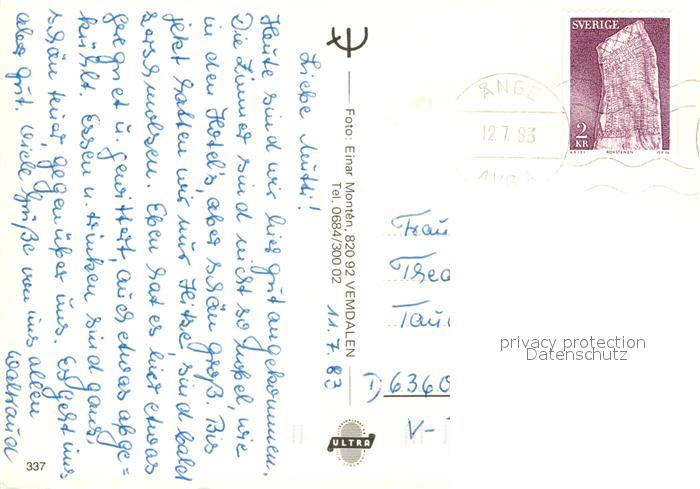 11.7.83
Liebe Mutti!
Heute sind wir hier gut angekommen.
Die Zimmer sind nicht so nobel, wie
in den Hotels, aber schön groß. Bis
jetzt hatten wir nur Hitze, sind bald
zerschmolzen. Eben hat es hier etwas
geregnet u. gewittert, auch etwas abge=
kühlt. Essen u. trinken sind ganz
schön teuer, gegenüber uns. Es geht uns
aber gut. Viele Grüße von uns allen
Waltraud
Foto: Einar Montén, 820 92 VEMDALEN
Tel. 0684/300 02
ULTRA
337
SVERIGE
2
KR
ROKSTENEN
ÅNGE
12.7.83
AVG A
Frau
Thea
Tau
D 6360
V-
privacy protection
Datenschutz